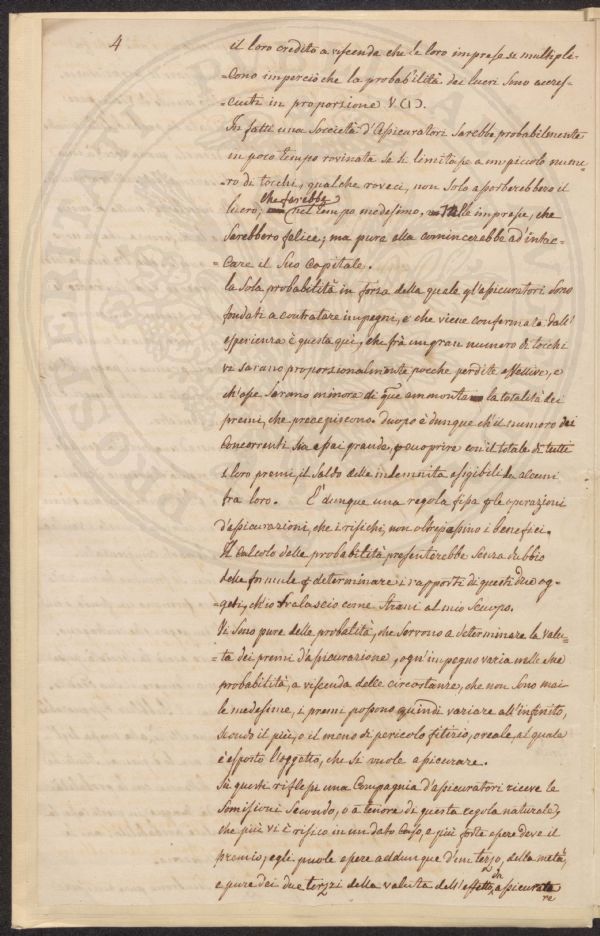 4
il loro credito a viscenda che le loro imprese se multiple-
-cono imperciò che la probabilità dei lucri sono accres-
-ciuti in proporzione V. (1).
In fatti una Soccietà d'Assicuratori sarebbe probabilmente
in poco tempo rovinata se si limitasse a un piccolo nume-
ro di tocchi, qualche roveci, non solo assorberebbero il
che farebbe
lucro, nel tempo medesimo, alle imprese, che
sarebbero felice; ma pure ella comincerebbe ad'intac-
-care il suo capitale.
la sola probabilità in forza della quale gl'assicuratori sono
fondati a contratare impegni, e che viene confermata dall'
esperienza è questa qui, che frà un gran numero di tocchi
ve sarano proporsionalmente pocche perdite effettive, e
ch'esse sarano minore di quel ammonta la totalità dei
premi, che precepiscono. Duopo è dunque ch'il numero dei
concorrenti sia assai grande, p cuoprire con il totale di tutti
i loro premi, il saldo delle indemnità esigibili da alcuni
fra loro. E' dunque una regola fissa p le operazioni
d'assicurazioni, che i risichi, non oltrepassino i benefici.
Il calcolo delle probabilità presenterebbe senza dubbio
delle formule p determinare i rapporti di questi due og-
-geti, ch'io tralascio come strani al mio scuopo.
Vi sono pure delle probalità, che servono a determinare la valu-
-ta dei premi d'assicurazione, ogn'impegno varia nelle sue
probabilità, a viscenda delle circostanze, che non sono mai
le medesime, i premi possono quindi variare all'infinito,
secudo il più, o il meno di pericolo fitizio, o reale, al quale
è esposto l'oggetto, che si vuole assicurare.
Sù questi riflessi una Compagnia d'assicuratori riceve le
Somisioni secundo, o a tenore di questa regola naturale,
che più vi è risico in un dato caso, e più forte essere deve il
premio; egli puole essere addunque d'un terzo, della metà,
e pure dei due terzi della valuta dell'effetto da assicurare
re